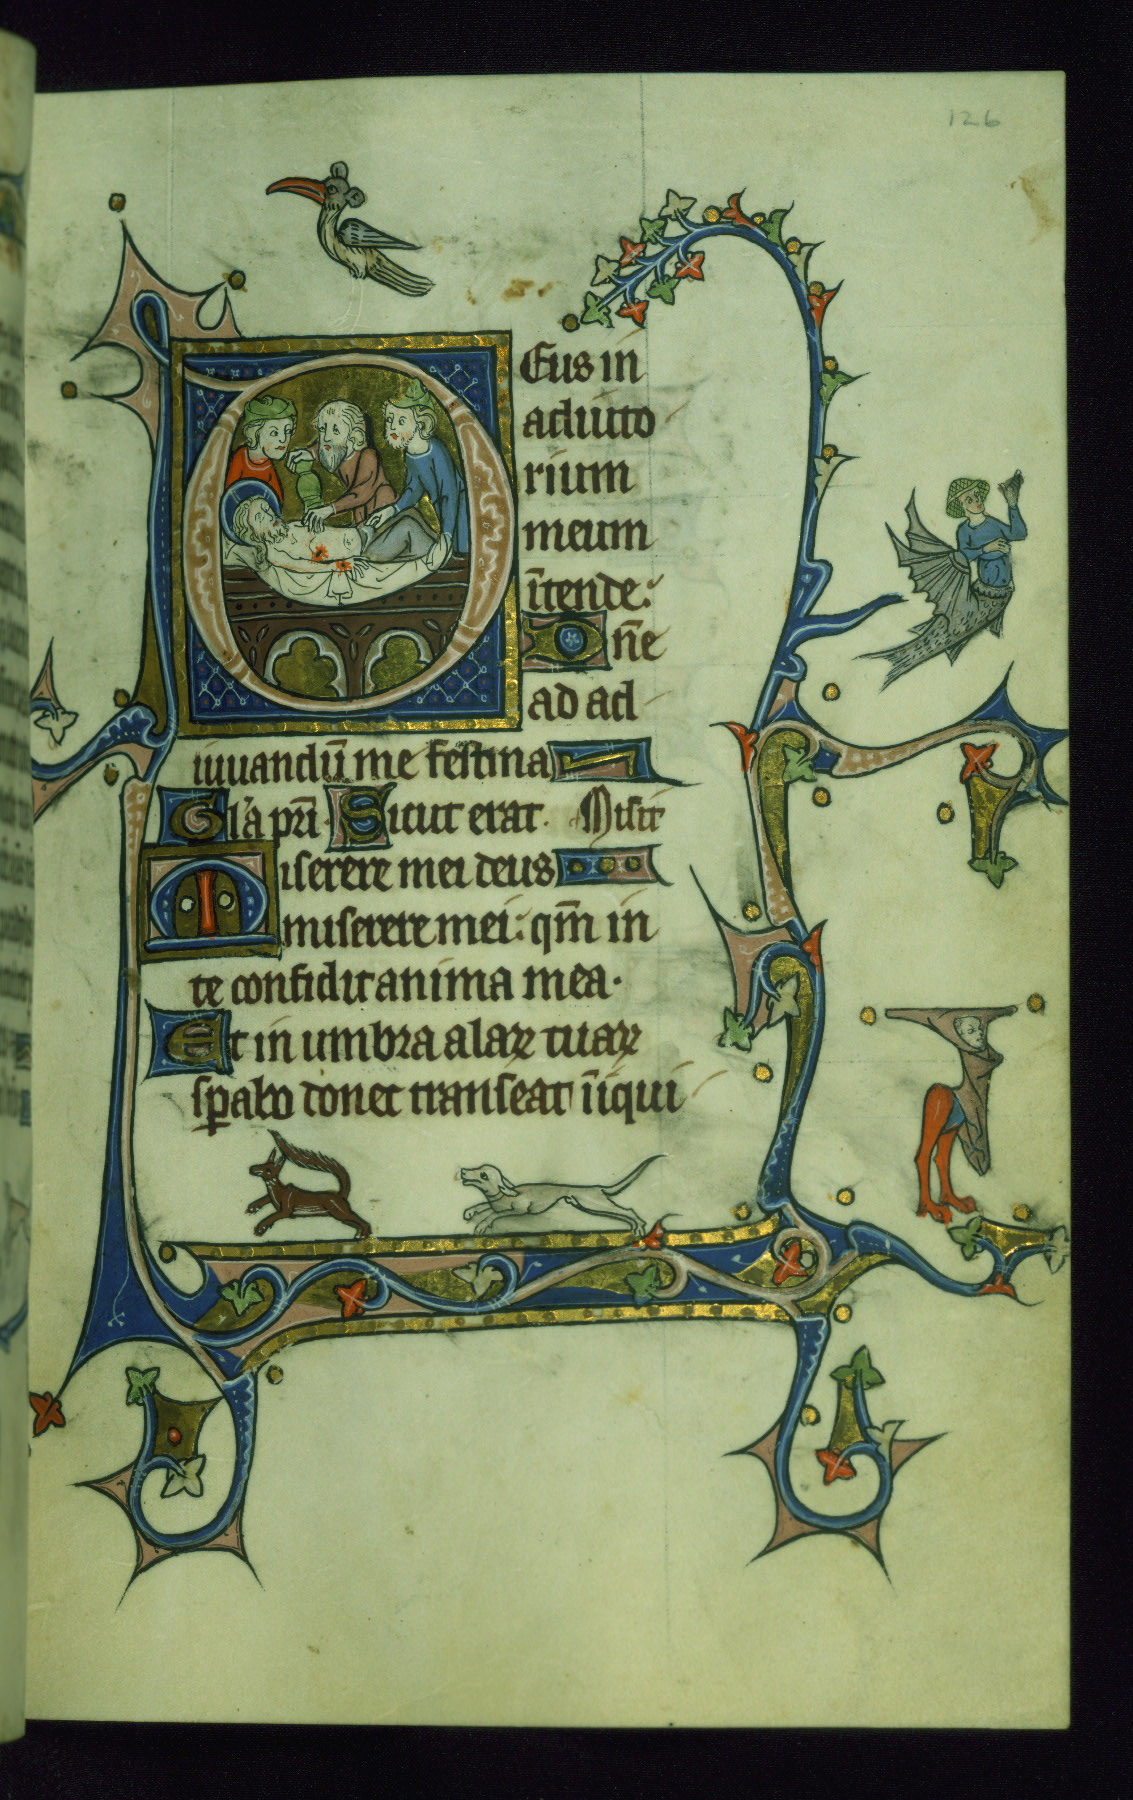 126
Deus in
adiuto
rium
meum
ītende:
Dn̄e
ad ad
iuuandū me festina
Gl'a pri Sicut erat. Misit
Miserere mei deus
miserere mei: qm̄ in
te confidit anima mea.
Et in umbra alaꝝ tuaꝝ
ꝑabo donec transeat īiqui